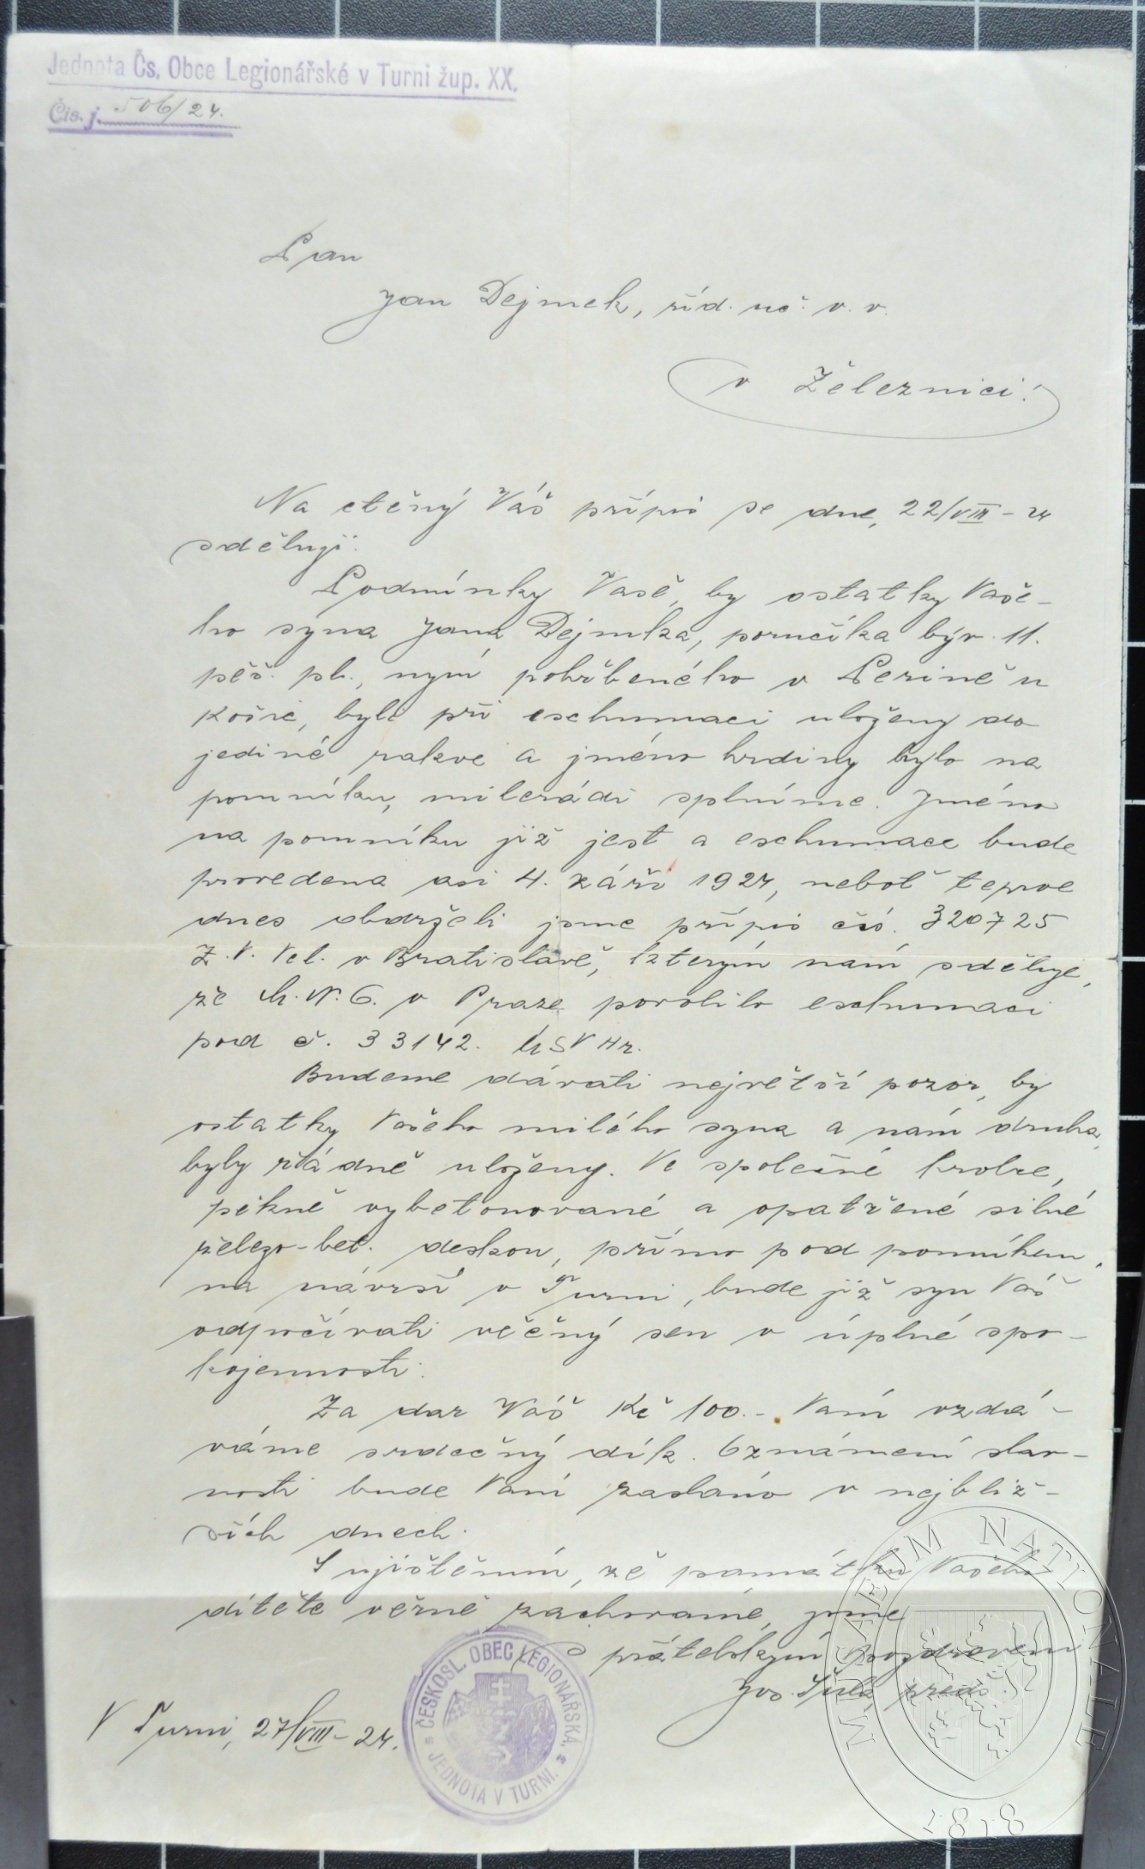 Jednota Čs. Obce Legionářské v Turni žup. XX.
Čís. j. 506/24.
Pan
Jan Dejmek, říd. uč. v. v.
v Železnici!
Na ctěný Váš přípis ze dne, 22/VIII - 24
sděluji:
Podmínky Vaše, by ostatky Vaše-
ho syna Jana Dejmka, poručíka býv. 11.
pěš. pl., nyní pohřbeného v Perině u
Košic, byly při eschumaci uloženy do
jediné rakve a jméno hrdiny bylo na
pomníku, milerádi splníme. Jméno
na pomníku již jest a eschumace bude
provedena asi 4. září 1924, neboť teprve
dnes obdrželi jsme přípis čís. 320725
Z. V. Vel. v Bratislavě, kterým nám sděluje,
že M. N. O. v Praze povolilo eschumaci
pod č. 33142.
Budeme dávati největší pozor, by
ostatky Vašeho milého syna a nám druha,
byly řádně uloženy. Ve společné hrobce,
pěkně vybetonované a opatřené silně
železo-bet. deskou, přímo pod pomníkem,
na návrší v Turni, bude již syn Váš
odpočívati věčný sen v úplné spo-
kojennosti.
Za dar Váš Kč 100.- Vám vzdá-
váme srdečný dík. Oznámení slav-
nosti bude Vám zasláno v nejbliž-
ších dnech.
S ujištěním, že památku Vašeho
dítěte věrně zachováme, jsme
s přátelským pozdravem
Jos. předs.
V Turni, 27/VIII - 24.
ČESKOSL. OBEC LEGIONÁŘSKÁ.
* JEDNOTA V TURNI. *
MUSAEUM NATIONALE
1818